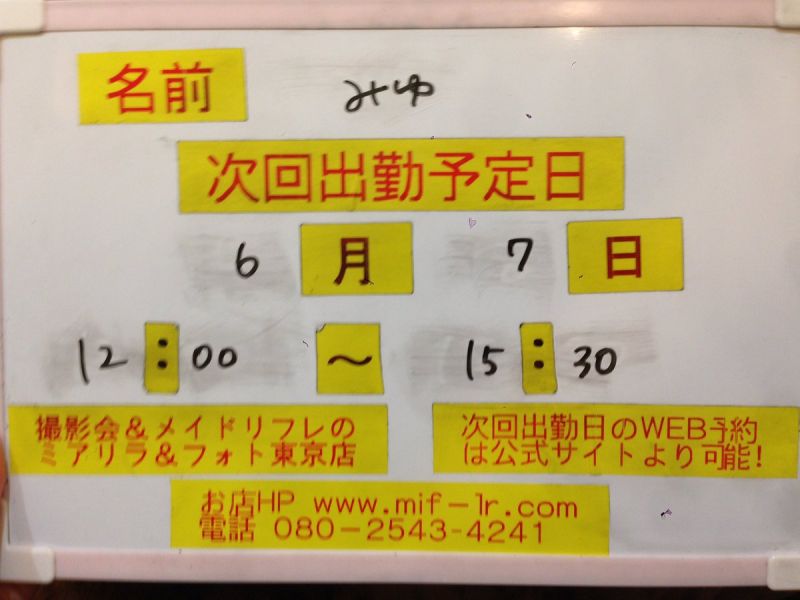 名前 みゆ
次回出勤予定日
6月7日
12:00～15:30
撮影会＆メイドリフレの
ミアリラ＆フォト東京店
次回出勤日のWEB予約
は公式サイトより可能!
お店HP www.mif-lr.com
電話 080-2543-4241